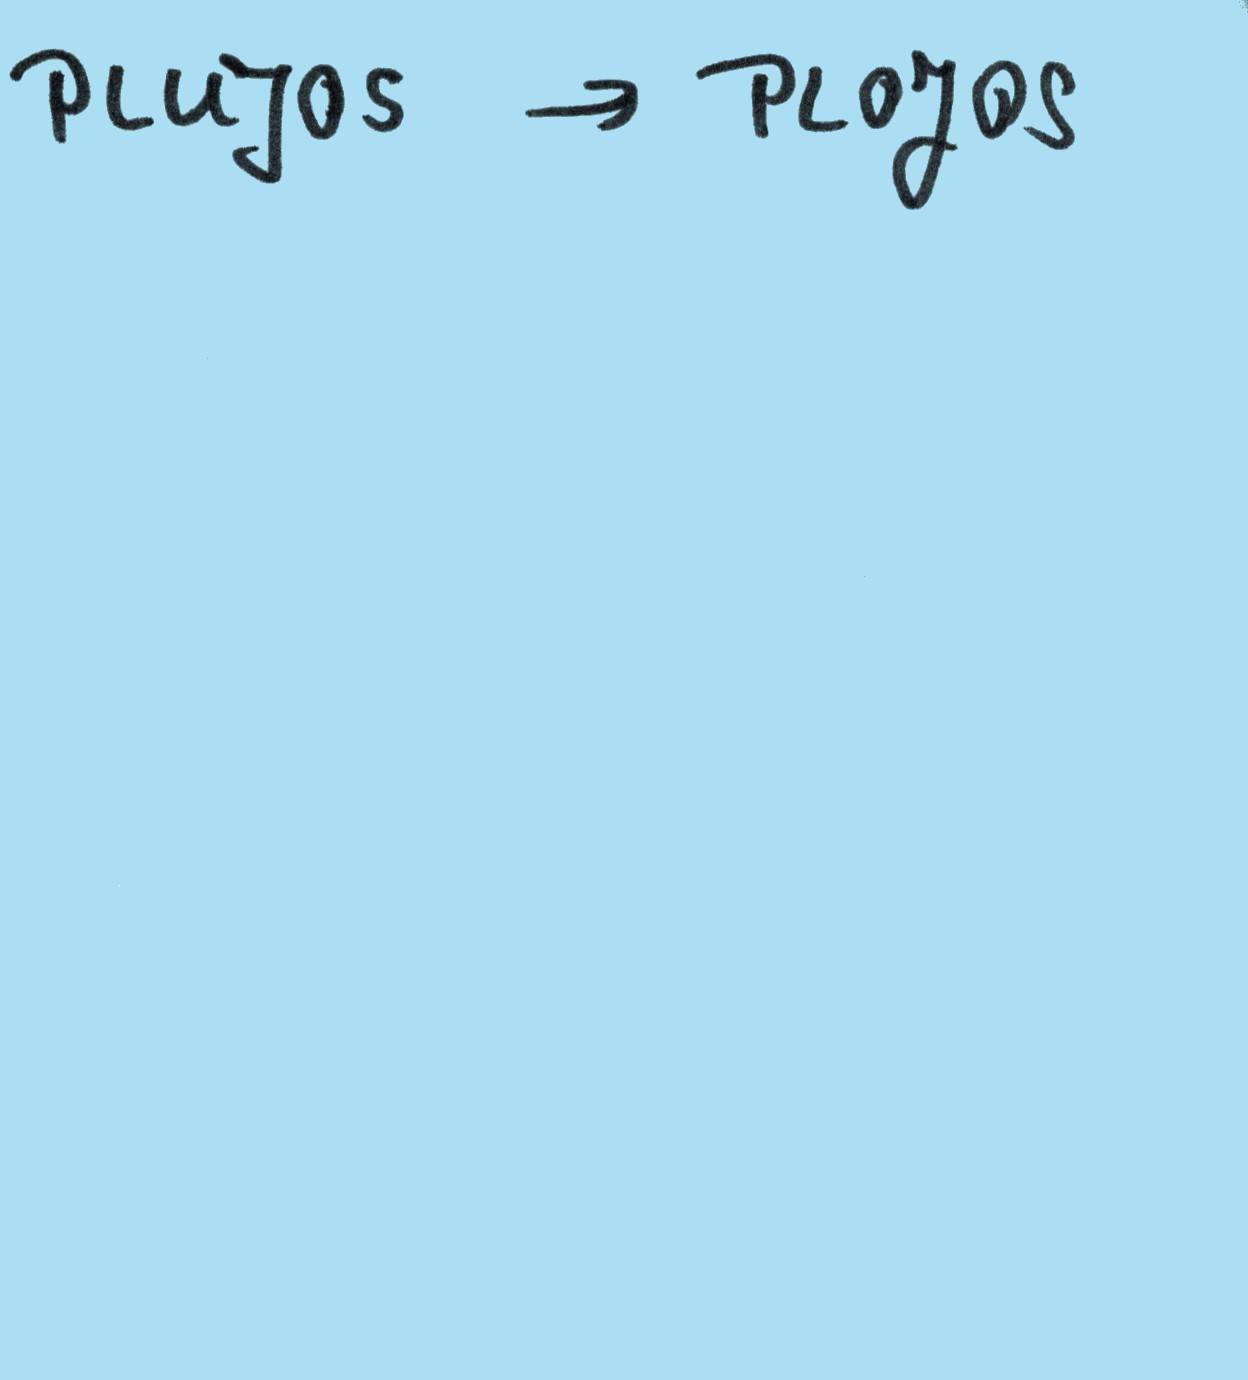 PLUJOS → PLOJOS